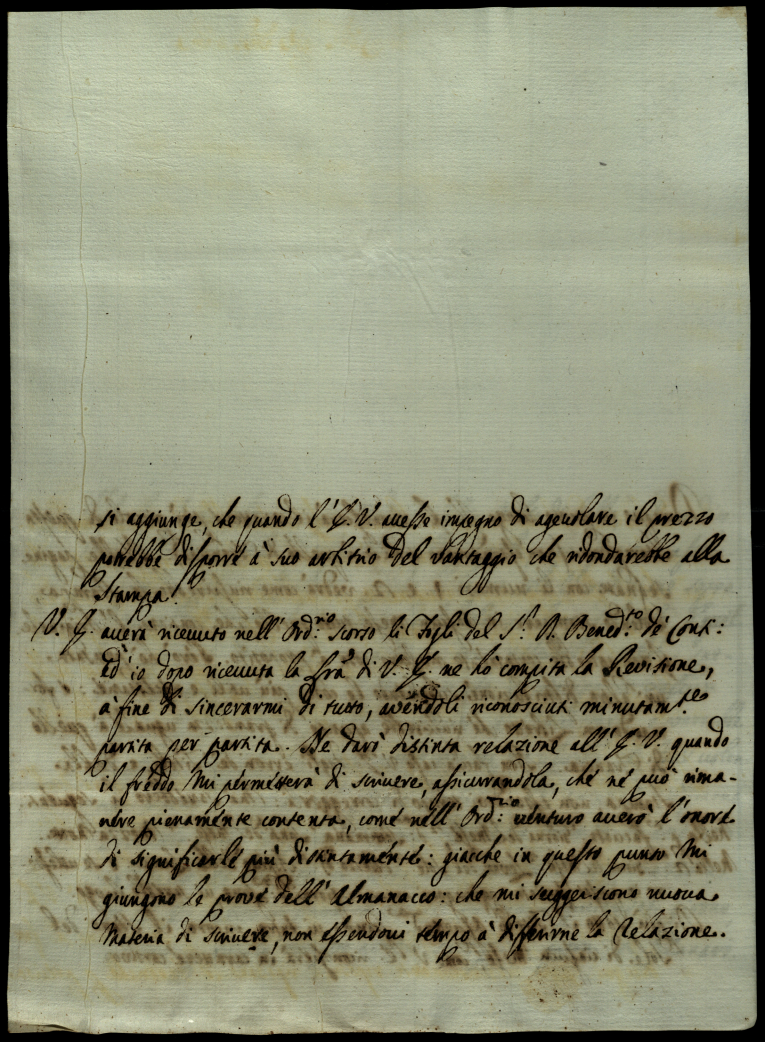 si aggiunge, che quando l'E. V. auesse impegno di ageuolare il prezzo
potrebbe disporre à suo arbitrio del Vantaggio che ridondarebbe alla
Stampa.
V. E. auerà riceuuto nell'Ord:rio scorso li Fogli del S.r A. Bened:to de' Conti:
ed' io dopo riceuuta la lrã di V. E. ne hò compita la Reuisione,
à fine di sincerarmi di tutto, avendoli riconosciuti minutam.te
partita per partita. Ne darò distinta relazione all'E. V. quando
il freddo Mi permetterà di scriuere, assicurandola, che ne può rima-
nere pienamente contenta, come nell'Ord:rio uenturo auerò l'onore
di significarle più distintamente: giacche in questo punto Mi
giungono le proue dell'Almanacco: che mi suggeriscono nuoua
Materia di scriuere, non essendoui tempo à differirne la Relazione.